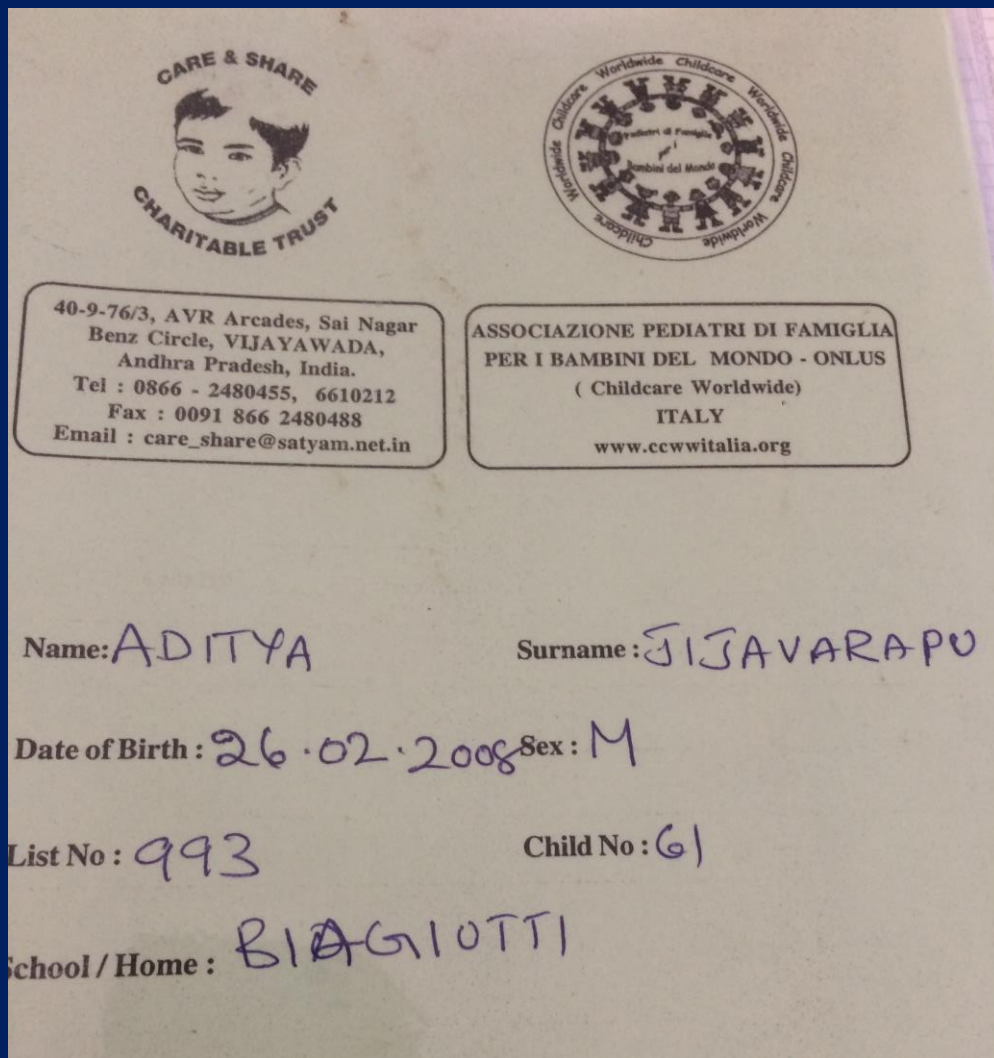 CARE & SHARE
CHARITABLE TRUST
Worldwide Childcare Worldwide Childcare Worldwide Childcare Worldwide Childcare
Pediatri di Famiglia
per i
Bambini del Mondo
40-9-76/3, AVR Arcades, Sai Nagar
Benz Circle, VIJAYAWADA,
Andhra Pradesh, India.
Tel : 0866 - 2480455, 6610212
Fax : 0091 866 2480488
Email : care_share@satyam.net.in
ASSOCIAZIONE PEDIATRI DI FAMIGLIA
PER I BAMBINI DEL MONDO - ONLUS
( Childcare Worldwide)
ITALY
www.ccwwitalia.org
Name: ADITYA Surname : JIJAVARAPU
Date of Birth : 26.02.2008 Sex : M
List No : 993 Child No : 61
School / Home : BIAGIOTTI